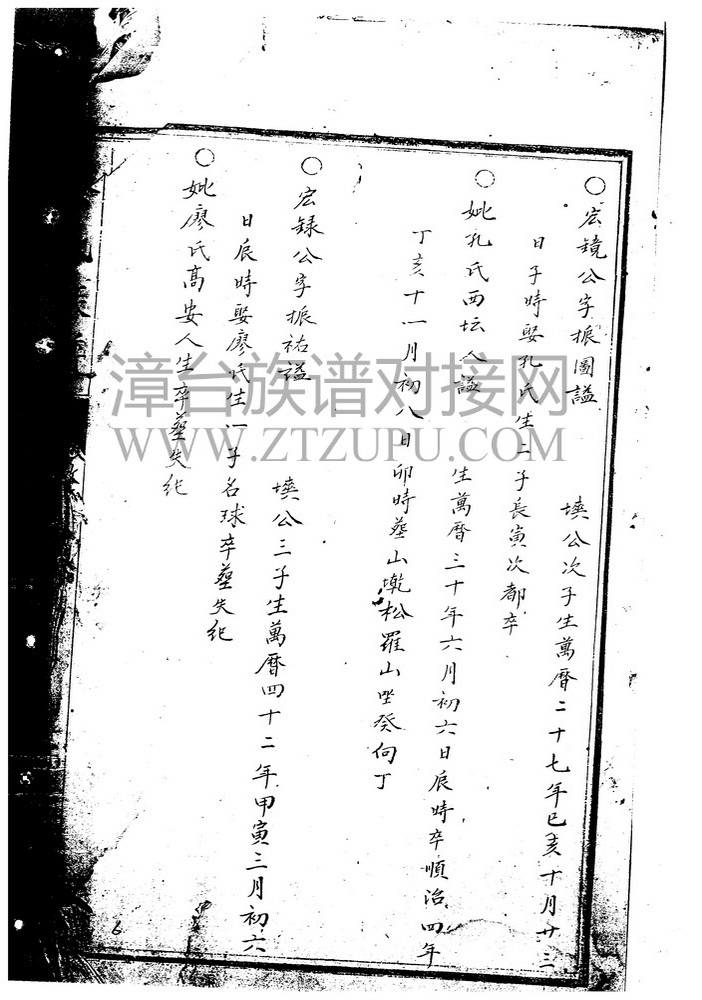 ○宏鏡公字振圖謚 墺公次子生萬曆二十七年已亥十月廿三
日子時娶孔氏生二子長寅次都卒
○妣孔氏西坛人謚 生萬曆三十年六月初六日辰時卒順治四年
丁亥十一月初八日卯時塟山墘松羅山坐癸向丁
○宏錄公字振祜謚 墺公三子生萬曆四十二年甲寅三月初六
日辰時娶廖氏生一子名球卒塟失紀
○妣廖氏高安人生卒塟失紀
漳台族谱对接网
WWW.ZTZUPU.COM